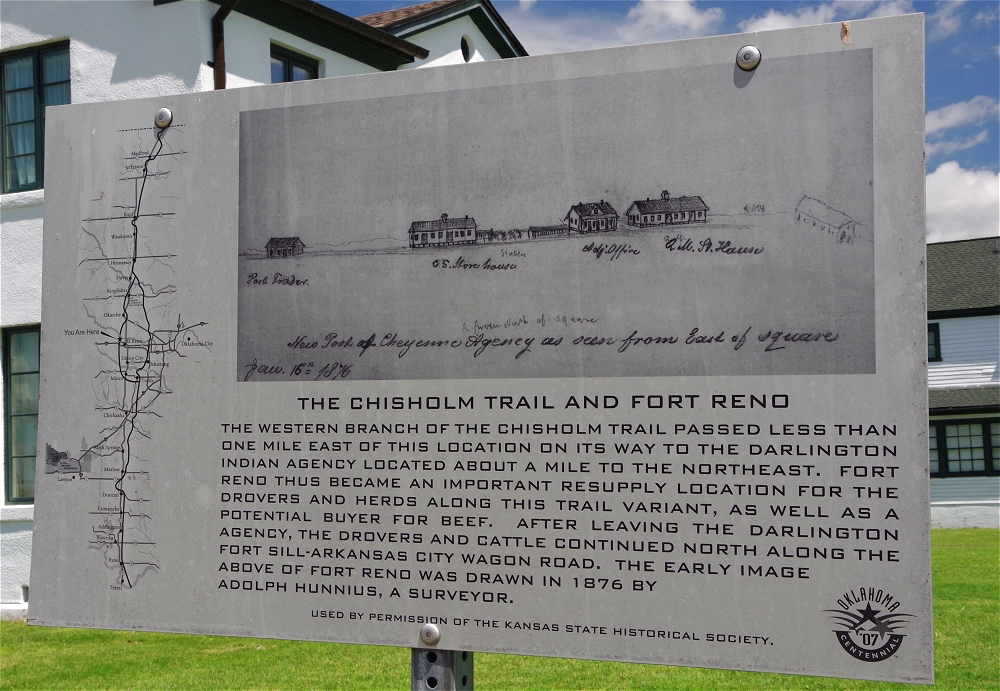 Medford
Jefferson
Enid
Waukomis
Hennessey
Dover
Kingfisher
Okarche
You Are Here
El Reno
Oklahoma City
Union City
Minco
Chickasha
Rush Springs
Marlow
Lawton
Duncan
Comanche
Addington
Waurika
Ryan
Terral
Post Trader.
C.S. Store house
Stables
Adj. Office
Q.M. St. House
New Post at Cheyenne Agency as seen from East of square
Jan. 15th 1876
THE CHISHOLM TRAIL AND FORT RENO
THE WESTERN BRANCH OF THE CHISHOLM TRAIL PASSED LESS THAN
ONE MILE EAST OF THIS LOCATION ON ITS WAY TO THE DARLINGTON
INDIAN AGENCY LOCATED ABOUT A MILE TO THE NORTHEAST. FORT
RENO THUS BECAME AN IMPORTANT RESUPPLY LOCATION FOR THE
DROVERS AND HERDS ALONG THIS TRAIL VARIANT, AS WELL AS A
POTENTIAL BUYER FOR BEEF. AFTER LEAVING THE DARLINGTON
AGENCY, THE DROVERS AND CATTLE CONTINUED NORTH ALONG THE
FORT SILL-ARKANSAS CITY WAGON ROAD. THE EARLY IMAGE
ABOVE OF FORT RENO WAS DRAWN IN 1876 BY
ADOLPH HUNNIUS, A SURVEYOR.
USED BY PERMISSION OF THE KANSAS STATE HISTORICAL SOCIETY.
OKLAHOMA
'07
CENTENNIAL